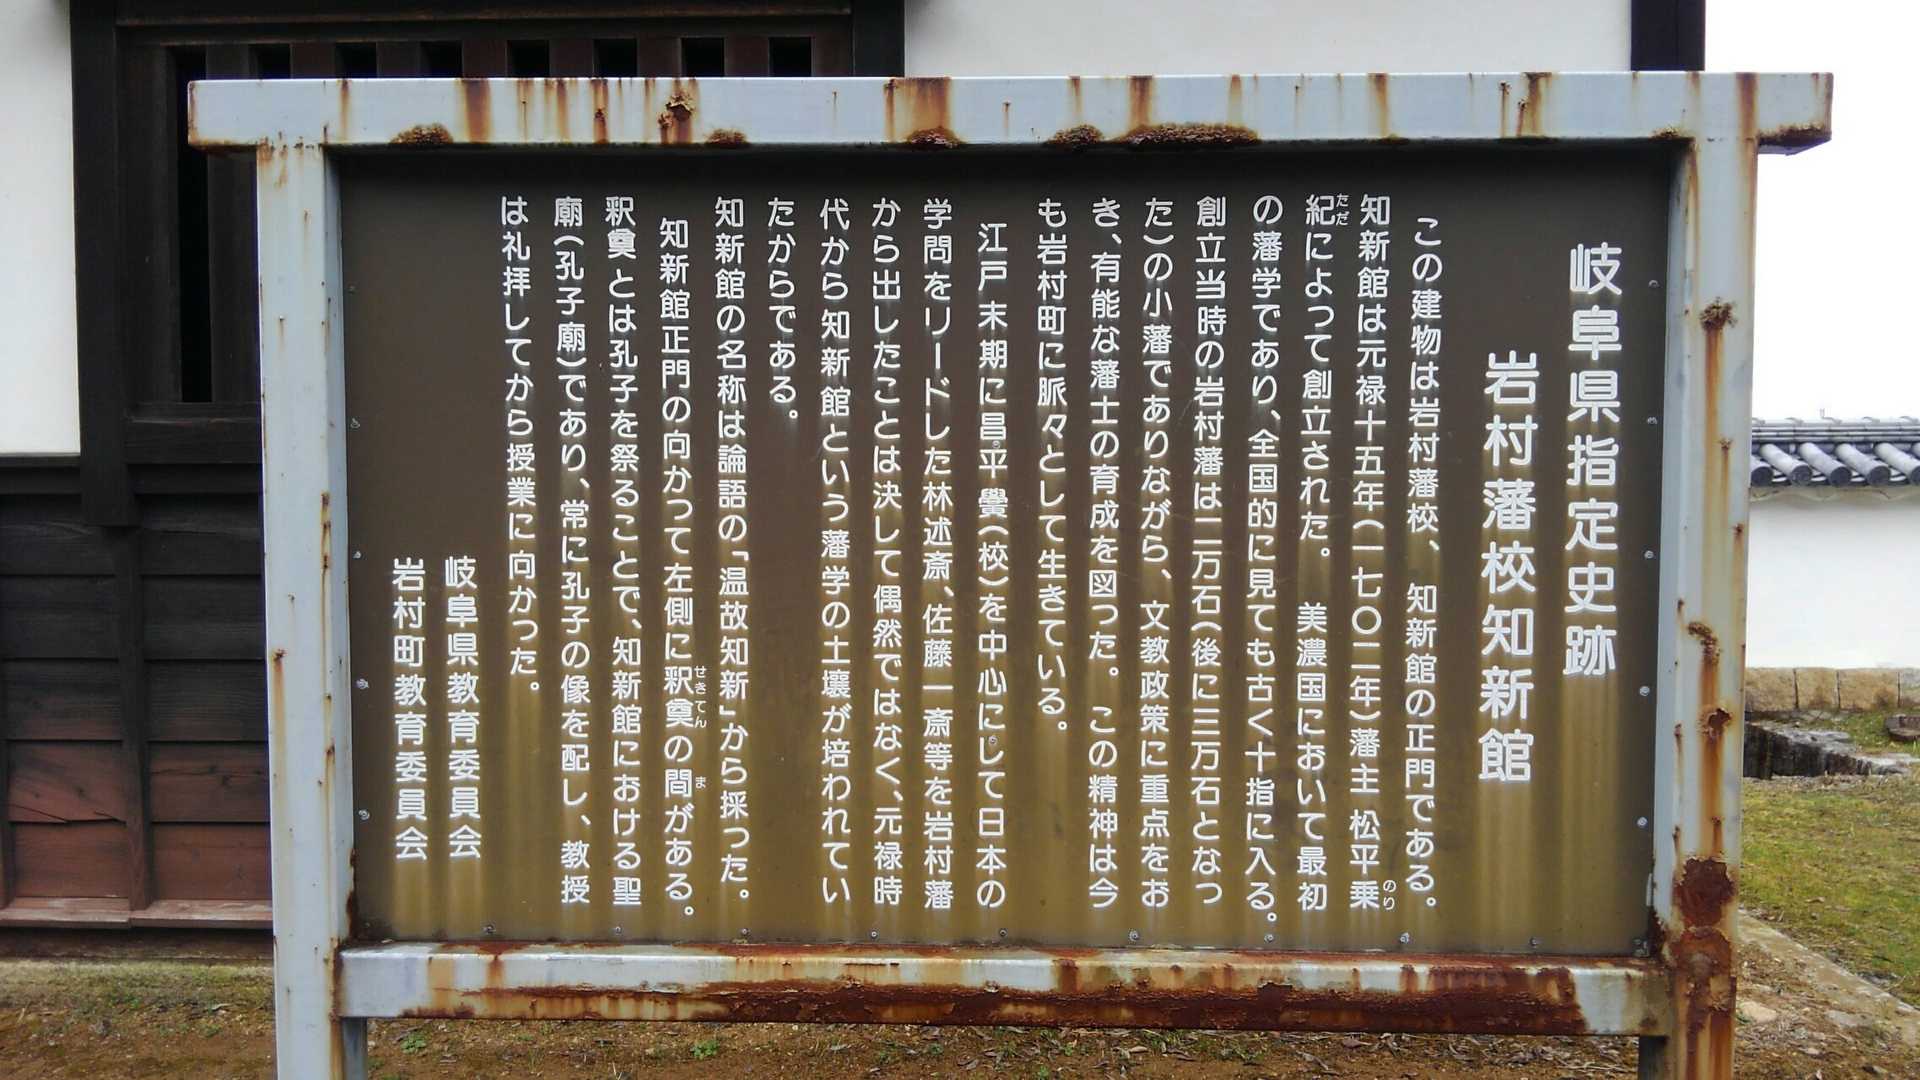 岐阜県指定史跡
岩村藩校知新館
この建物は岩村藩校、知新館の正門である。
知新館は元禄十五年(一七〇二年)藩主 松平乗
のり
紀によって創立された。美濃国において最初
ただ
の藩学であり、全国的に見ても古く十指に入る。
創立当時の岩村藩は二万石(後に三万石となっ
た)の小藩でありながら、文教政策に重点をお
き、有能な藩士の育成を図った。この精神は今
も岩村町に脈々として生きている。
江戸末期に昌平黌(校)を中心にして日本の
学問をリードした林述斎、佐藤一斎等を岩村藩
から出したことは決して偶然ではなく、元禄時
代から知新館という藩学の土壌が培われてい
たからである。
知新館の名称は論語の「温故知新」から採った。
知新館正門の向かって左側に釈奠の間がある。
せきてん
ま
釈奠とは孔子を祭ることで、知新館における聖
廟(孔子廟)であり、常に孔子の像を配し、教授
は礼拝してから授業に向かった。
岐阜県教育委員会
岩村町教育委員会